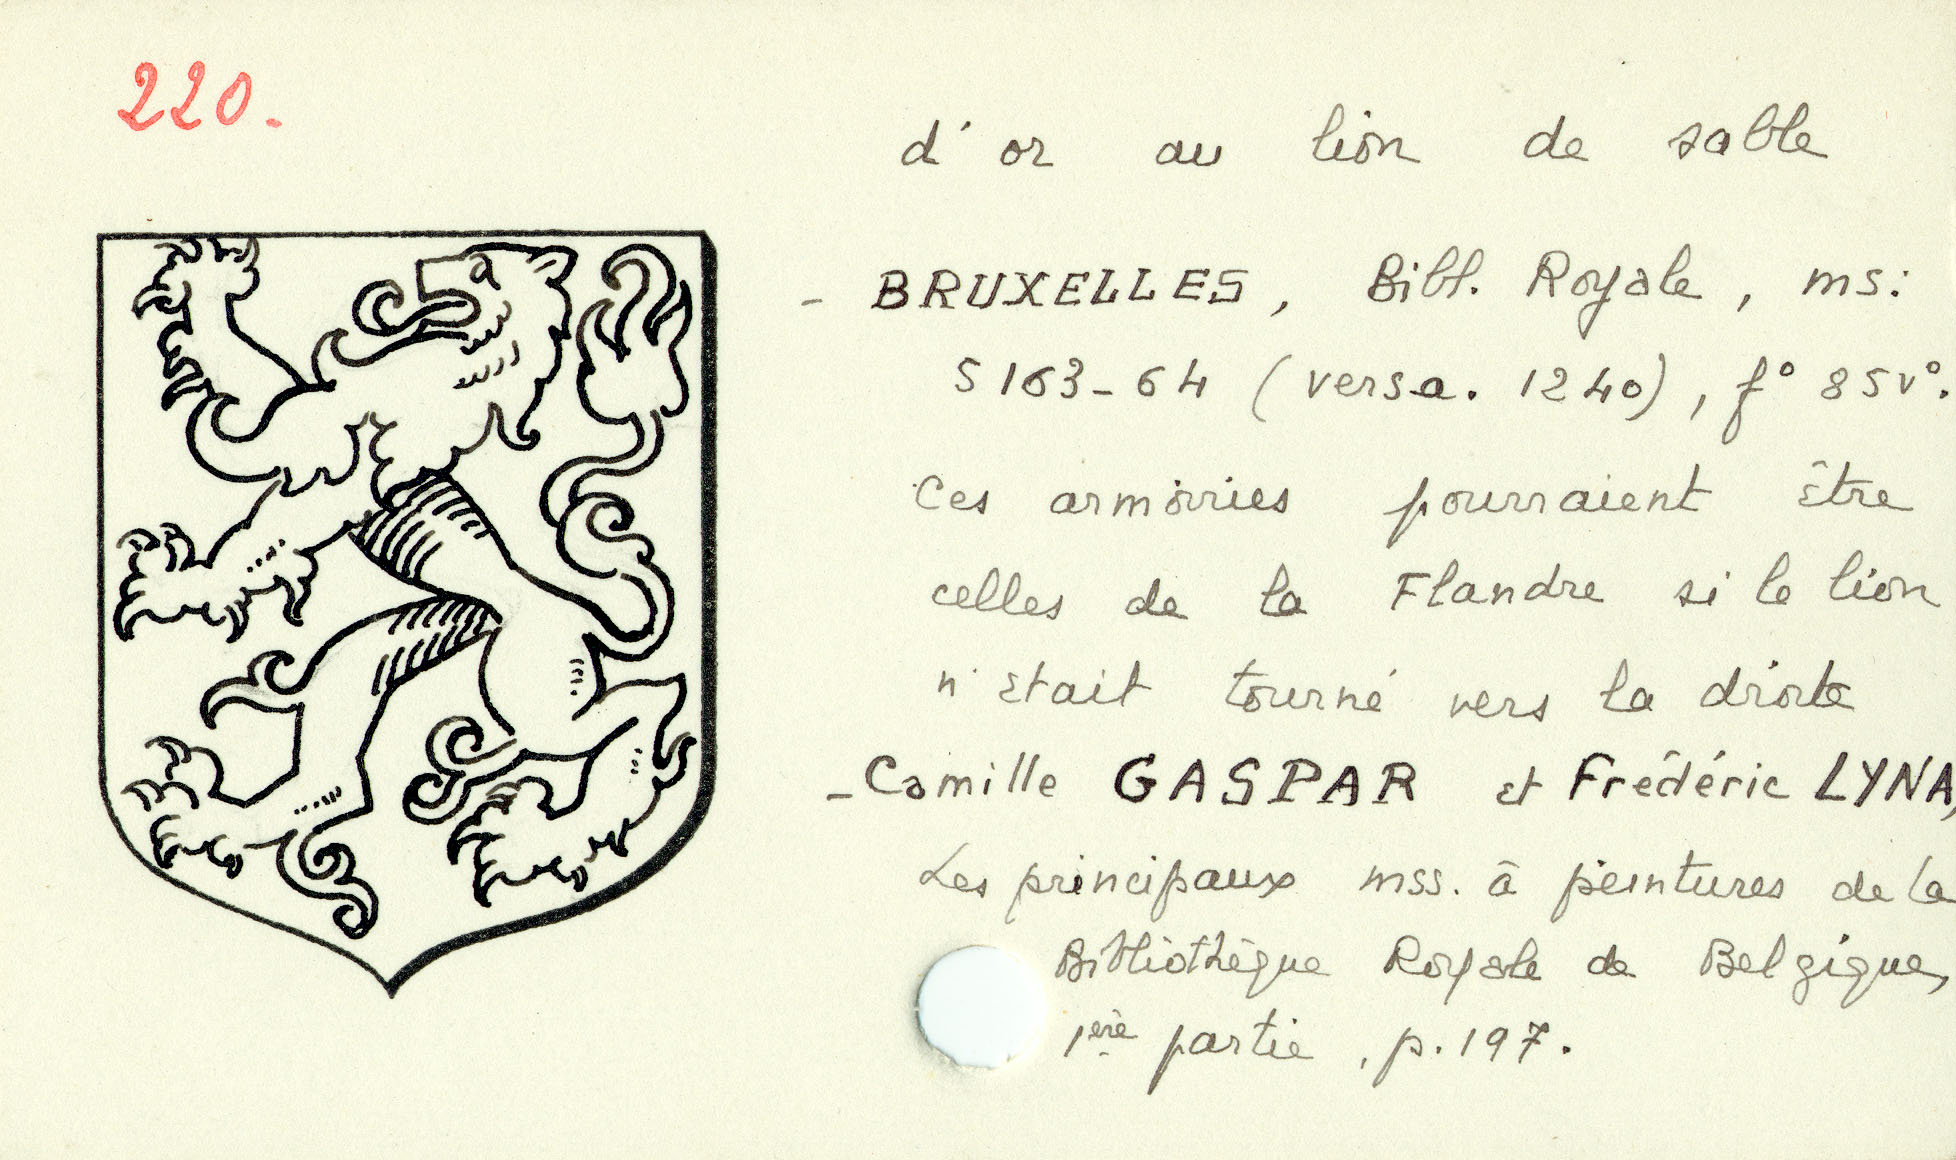 220.
d'or au lion de sable
- BRUXELLES, Bibl. Royale, ms:
5163-64 (vers a. 1240), f° 85v°.
Ces armoiries pourraient être
celles de la Flandre si le lion
n'était tourné vers la droite
- Camille GASPAR et Frédéric LYNA,
Les principaux mss. à peintures de la
Bibliothèque Royale de Belgique,
1ère partie, p. 197.